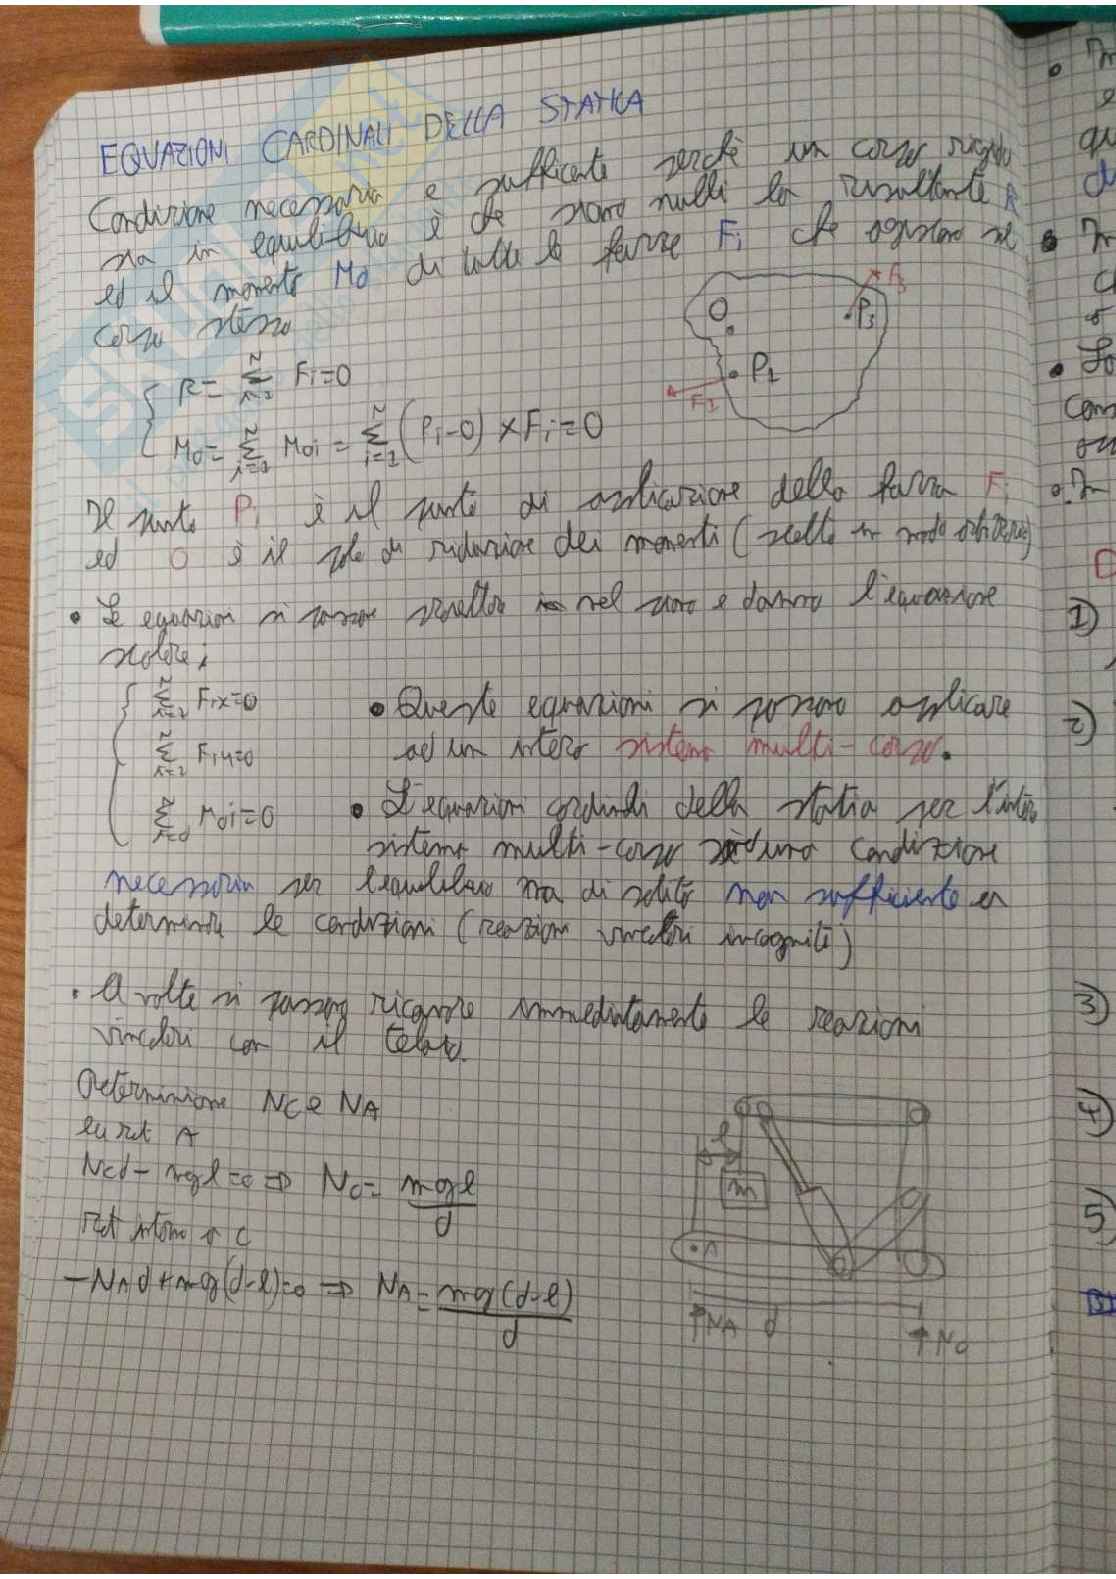 EQUAZIONI CARDINALI DELLA STATICA
Condizione necessaria e sufficiente perché un corpo rigido
sia in equilibrio è che siano nulli la risultante R
ed il momento Mo di tutte le forze Fi che agiscono sul
corpo stesso
R = Σ Fi=0
Mo= Σ Moi = Σ i=1 (Pi-O) × Fi=0
O
P3
F3
P1
F1
Il punto Pi è il punto di applicazione della forza Fi
ed O è il polo di riduzione dei momenti (scelto in modo arbitrario)
• Le equazioni si possono proiettare nel piano e danno l'equazione
scalare:
Σ Fix=0
Σ Fiy=0
Σ Moi=0
• Queste equazioni si possono applicare
ad un intero sistema multi-corpo.
• L'equazioni cardinali della statica per l'intero
sistema multi-corpo una condizione
necessaria per l'equilibrio ma di solito non sufficiente a
determinare le condizioni (reazioni vincolari incognite)
• A volte si possono ricavare immediatamente le reazioni
vincolari con il telaio.
Determinione NC e NA
rot A
Ncd - mgl=0 ⇒ Nc= mgl/d
rot intorno a C
-NAd+mg(d-l)=0 ⇒ NA= mg(d-l)/d
l
m
A
NA
d
Nc
1)
2)
3)
4)
5)